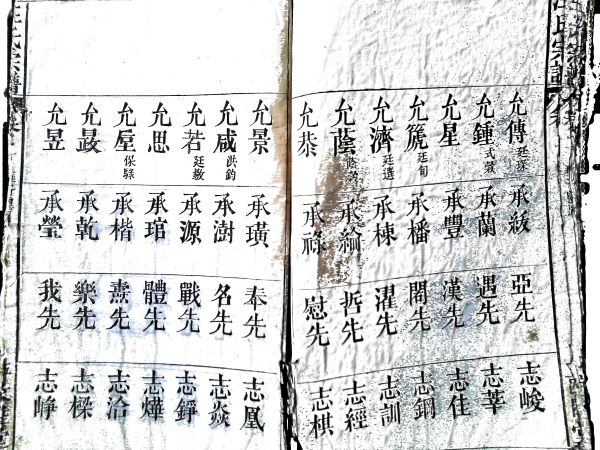 汪氏宗譜
允傳 廷琛
允鍾 式穀
允星
允箎 廷旬
允濟 廷選
允蔭
允恭
承綬
承蘭
承豐
承播
承棟
承綸
承祿
亞先
遇先
漢先
閣先
濯先
哲先
慰先
志峻
志莘
志佳
志鋼
志訓
志經
志棋
允景
允咸 洪鈞
允若 廷敷
允思
允垕 保縣
允晸
允昱
承璜
承澍
承源
承琯
承楷
承乾
承瑩
奉先
名先
戰先
體先
燾先
樂先
我先
志凰
志焱
志錚
志燁
志洽
志樑
志崢
汪氏宗譜